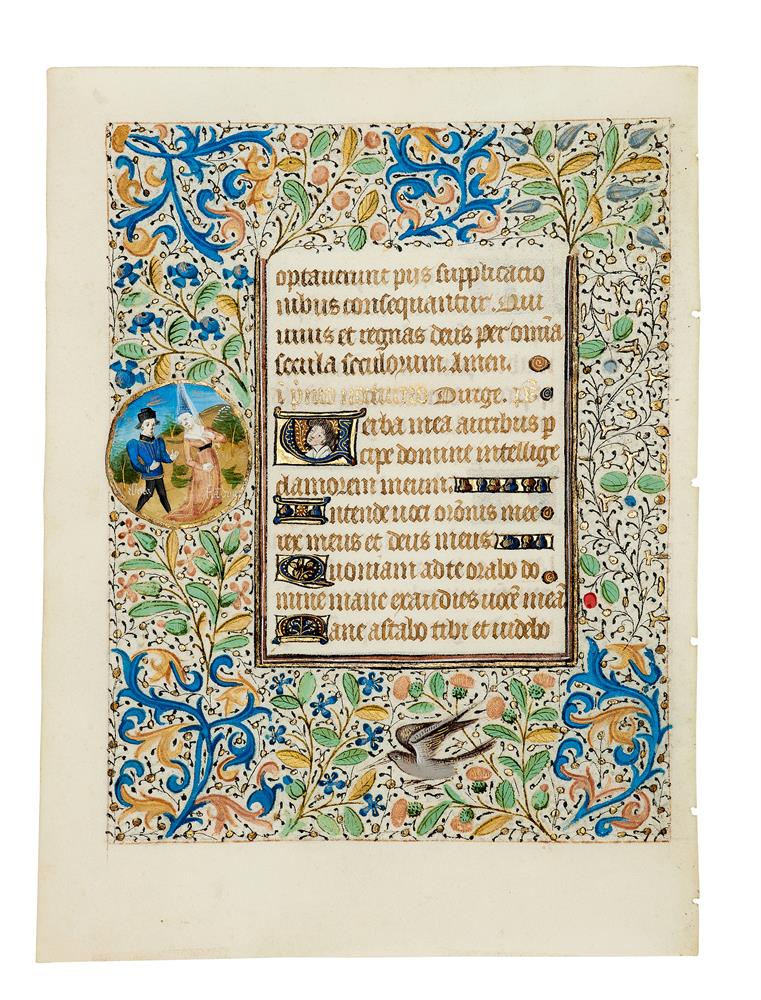 optauerunt pijs supplicacio
nibus consequantur. Qui
uiuis et regnas deus per omīa
secula seculorum. Amen.
Dirge. ps
Verba mea auribus p
cipe domine intellige
clamorem meum.
Intende uoci orōnis mee
rex meus et deus meus.
Quoniam ad te orabo do
mine mane exaudies uocē meā
Mane astabo tibi et uidebo